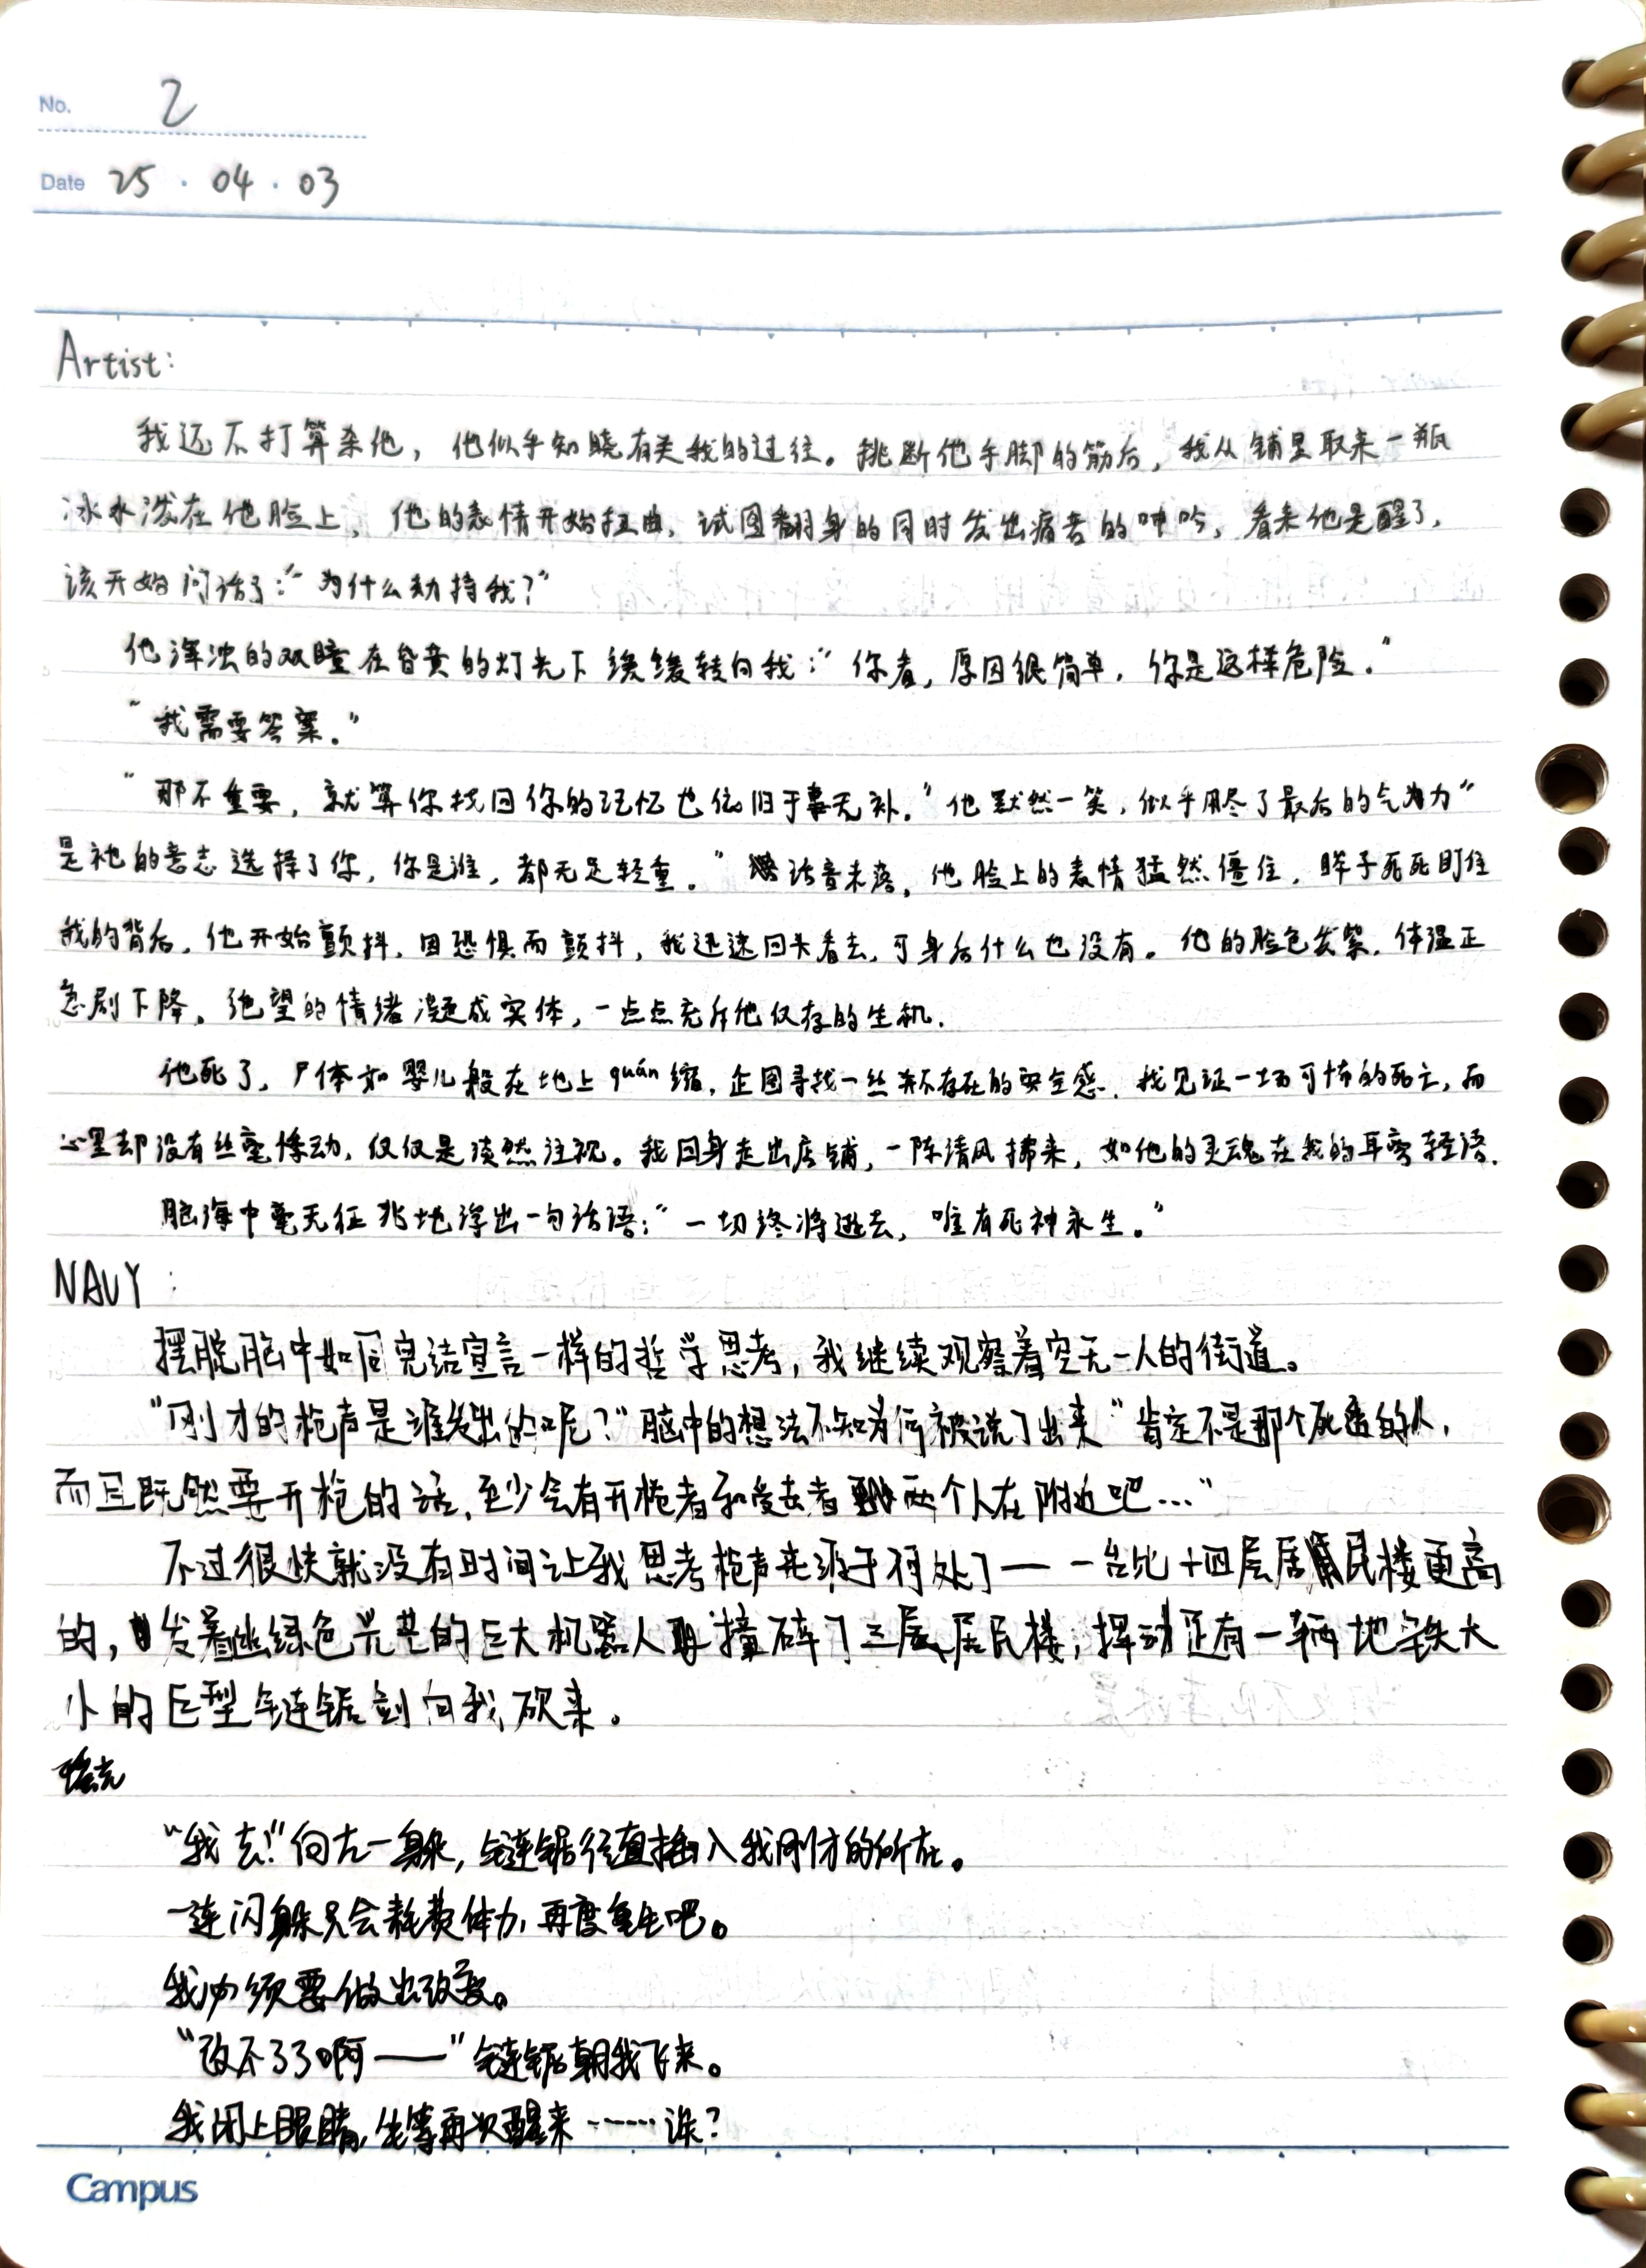 No. 2
Date 25 · 04 · 03
Artist:
我还不打算杀他，他似乎知晓有关我的过往。挑断他手脚的筋后，我从铺里取来一瓶
冰水泼在他脸上，他的表情开始扭曲，试图翻身的同时发出痛苦的呻吟，看来他是醒了，
该开始问话了：“为什么劫持我？”
他浑浊的双瞳在昏黄的灯光下缓缓转向我：“你看，原因很简单，你是这样危险。”
“我需要答案。”
“那不重要，就算你找回你的记忆也依旧于事无补。”他默然一笑，似乎用尽了最后的气力“
是祂的意志选择了你，你是谁，都无足轻重。”话音未落，他脸上的表情猛然僵住，眸子死死盯住
我的背后，他开始颤抖，因恐惧而颤抖，我迅速回头看去，可身后什么也没有。他的脸色发紫，体温正
急剧下降。绝望的情绪凝成实体，一点点充斥他仅存的生机.
他死了，尸体如婴儿般在地上quán缩，企图寻找一丝并不存在的安全感. 我见证一场可怖的死亡，而
心里却没有丝毫悸动，仅仅是漠然注视。我回身走出店铺，一阵清风拂来，如他的灵魂在我的耳旁轻语.
脑海中毫无征兆地浮出一句话语：“一切终将逝去，唯有死神永生。”
NAVY：
摆脱脑中如同完结宣言一样的哲学思考，我继续观察着空无一人的街道。
“刚才的枪声是谁发出的呢？”脑中的想法不知为何被说了出来“肯定不是那个死透的人，
而且既然要开枪的话，至少会有开枪者和受击者两个人在附近吧…”
不过很快就没有时间让我思考枪声来源于何处了——一台比十四层居民楼更高
的，发着幽绿色光芒的巨大机器人撞碎了三层居民楼，挥动足有一辆地铁大
小的巨型链锯剑向我砍来。
瑞克
“我去！”向左一躲，链锯径直插入我刚才的所在。
一连闪躲只会耗费体力，再度重生吧。
我必须要做出改变。
“改不了了啊——”链锯朝我飞来。
我闭上眼睛，坐等再次醒来……诶？
Campus